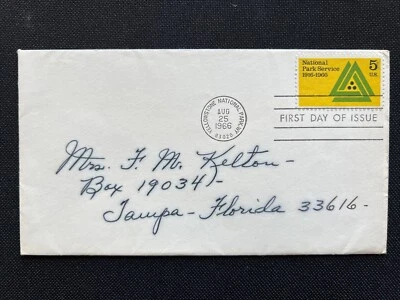 National
Park Service
1916-1966
5
U.S.
YELLOWSTONE NATIONAL PARK, WY
AUG
25
1966
82020
FIRST DAY OF ISSUE
Mrs. F. M. Kelton -
Box 19034 -
Tampa - Florida 33616 -